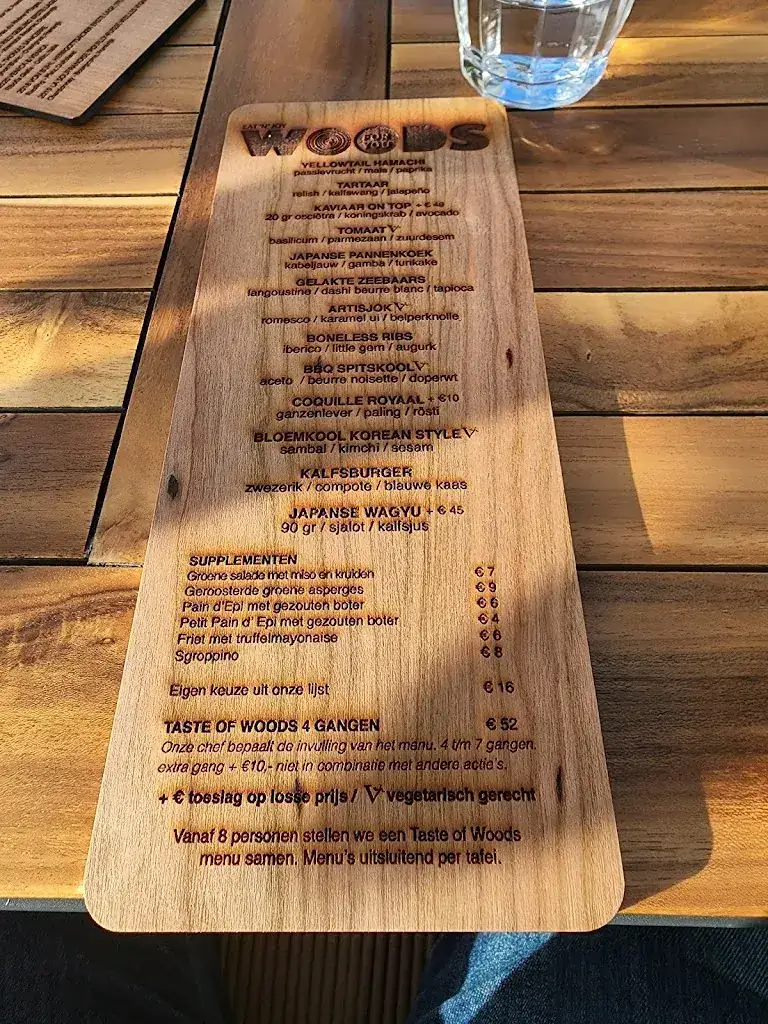 EAT 'N' JOY
WOODS
FOR YOU
YELLOWTAIL HAMACHI
passievrucht / mais / paprika
TARTAAR
relish / kalfswang / jalapeño
KAVIAAR ON TOP + € 49
20 gr osciëtra / koningskrab / avocado
TOMAAT V
basilicum / parmezaan / zuurdesem
JAPANSE PANNENKOEK
kabeljauw / gamba / furikake
GELAKTE ZEEBAARS
langoustine / dashi beurre blanc / tapioca
ARTISJOK V
romesco / karamel ui / belperknolle
BONELESS RIBS
iberico / little gem / augurk
BBQ SPITSKOOL V
aceto / beurre noisette / doperwt
COQUILLE ROYAAL + €10
ganzenlever / paling / rösti
BLOEMKOOL KOREAN STYLE V
sambal / kimchi / sesam
KALFSBURGER
zwezerik / compote / blauwe kaas
JAPANSE WAGYU + € 45
90 gr / sjalot / kalfsjus
SUPPLEMENTEN
Groene salade met miso en kruiden € 7
Geroosterde groene asperges € 9
Pain d'Epi met gezouten boter € 6
Petit Pain d' Epi met gezouten boter € 4
Friet met truffelmayonaise € 6
Sgroppino € 8
Eigen keuze uit onze lijst € 16
TASTE OF WOODS 4 GANGEN € 52
Onze chef bepaalt de invulling van het menu. 4 t/m 7 gangen.
extra gang + €10,- niet in combinatie met andere actie's.
+ € toeslag op losse prijs / V vegetarisch gerecht
Vanaf 8 personen stellen we een Taste of Woods
menu samen. Menu's uitsluitend per tafel.